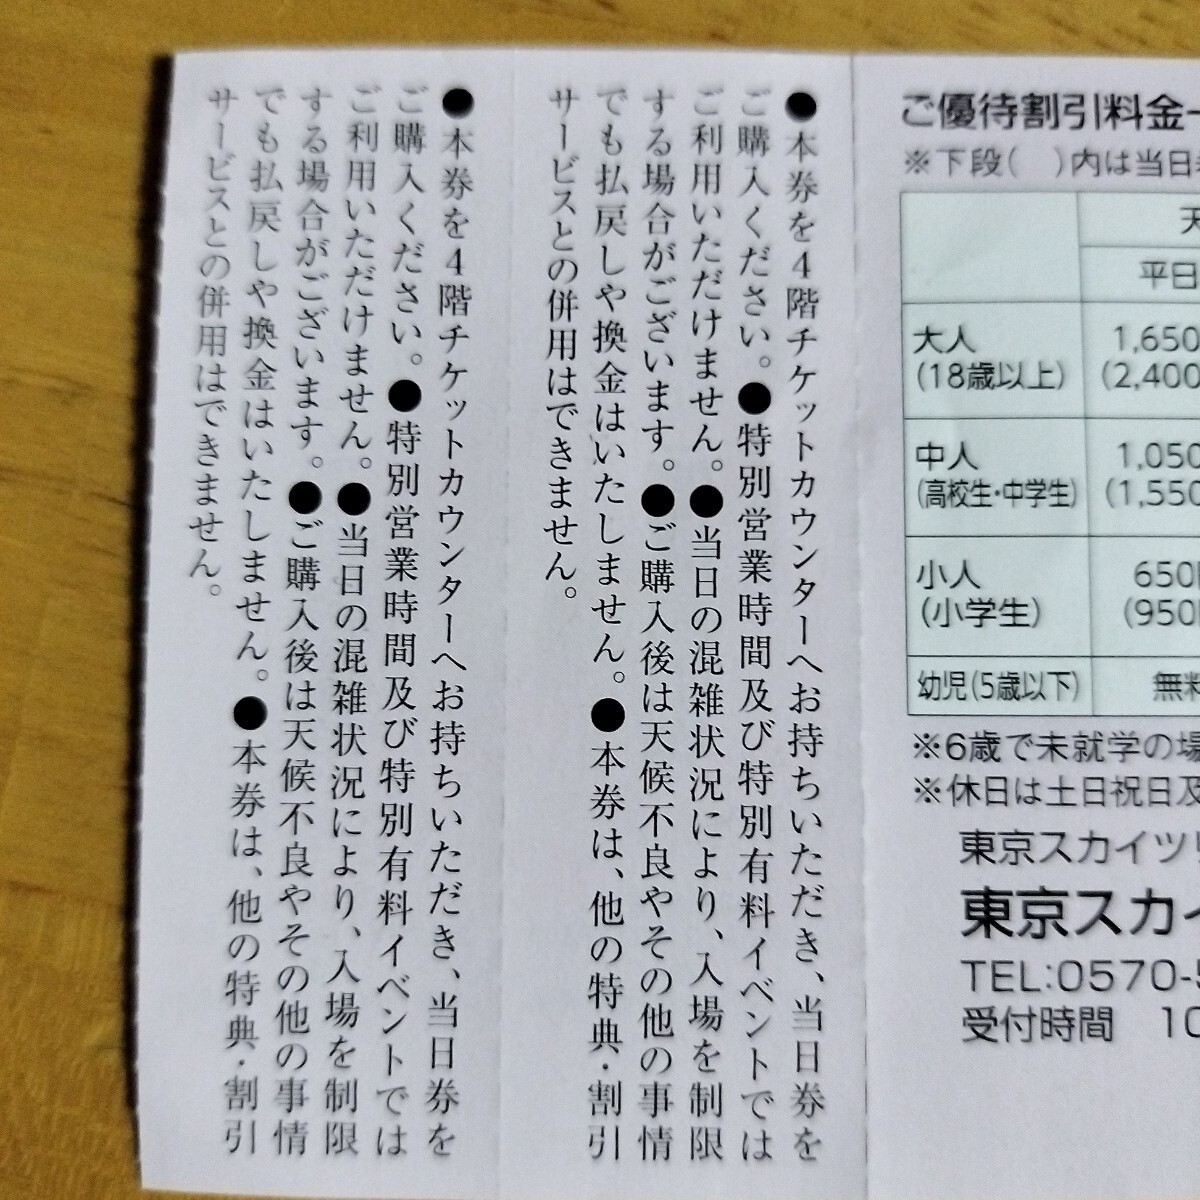 ●本券を4階チケットカウンターへお持ちいただき、当日券を
ご購入ください。●特別営業時間及び特別有料イベントでは
ご利用いただけません。●当日の混雑状況により、入場を制限
する場合がございます。●ご購入後は天候不良やその他の事情
でも払戻しや換金はいたしません。●本券は、他の特典・割引
サービスとの併用はできません。
●本券を4階チケットカウンターへお持ちいただき、当日券を
ご購入ください。●特別営業時間及び特別有料イベントでは
ご利用いただけません。●当日の混雑状況により、入場を制限
する場合がございます。●ご購入後は天候不良やその他の事情
でも払戻しや換金はいたしません。●本券は、他の特典・割引
サービスとの併用はできません。
ご優待割引料金
※下段(　)内は当日
天
平日
大人 1,650
(18歳以上) (2,400
中人 1,050
(高校生・中学生) (1,550
小人 650
(小学生) (950
幼児(5歳以下) 無料
※6歳で未就学の場
※休日は土日祝日及
東京スカイツリ
東京スカイ
TEL:0570-5
受付時間 10